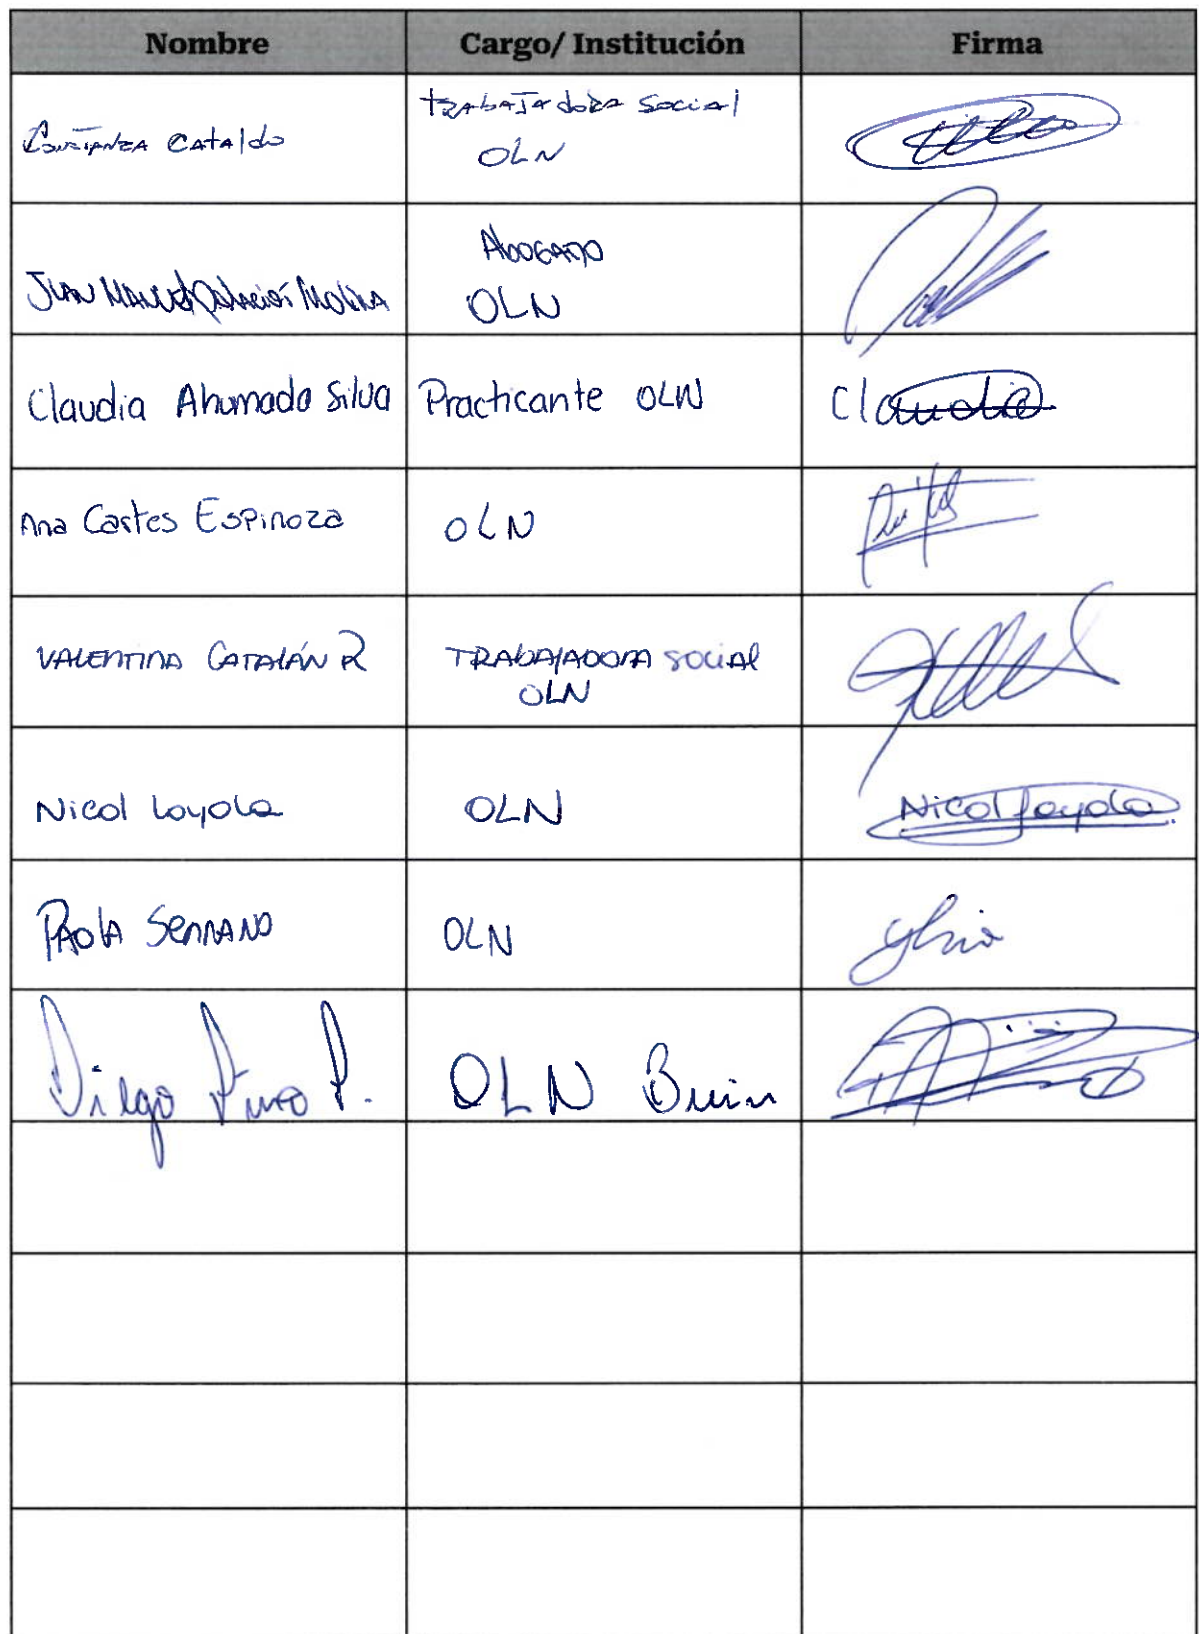 Nombre Cargo/ Institución Firma
Constanza Cataldo
trabajadora Social
OLN
Juan Manuel Palacios Molina
Abogado
OLN
Claudia Ahumada Silva Practicante OLN Claudia
Ana Cartes Espinoza OLN
VALENTINA CATALÁN R
TRABAJADORA SOCIAL
OLN
Nicol Loyola OLN Nicol Loyola
PAOLA SERRANO OLN
Diego P. OLN Buin